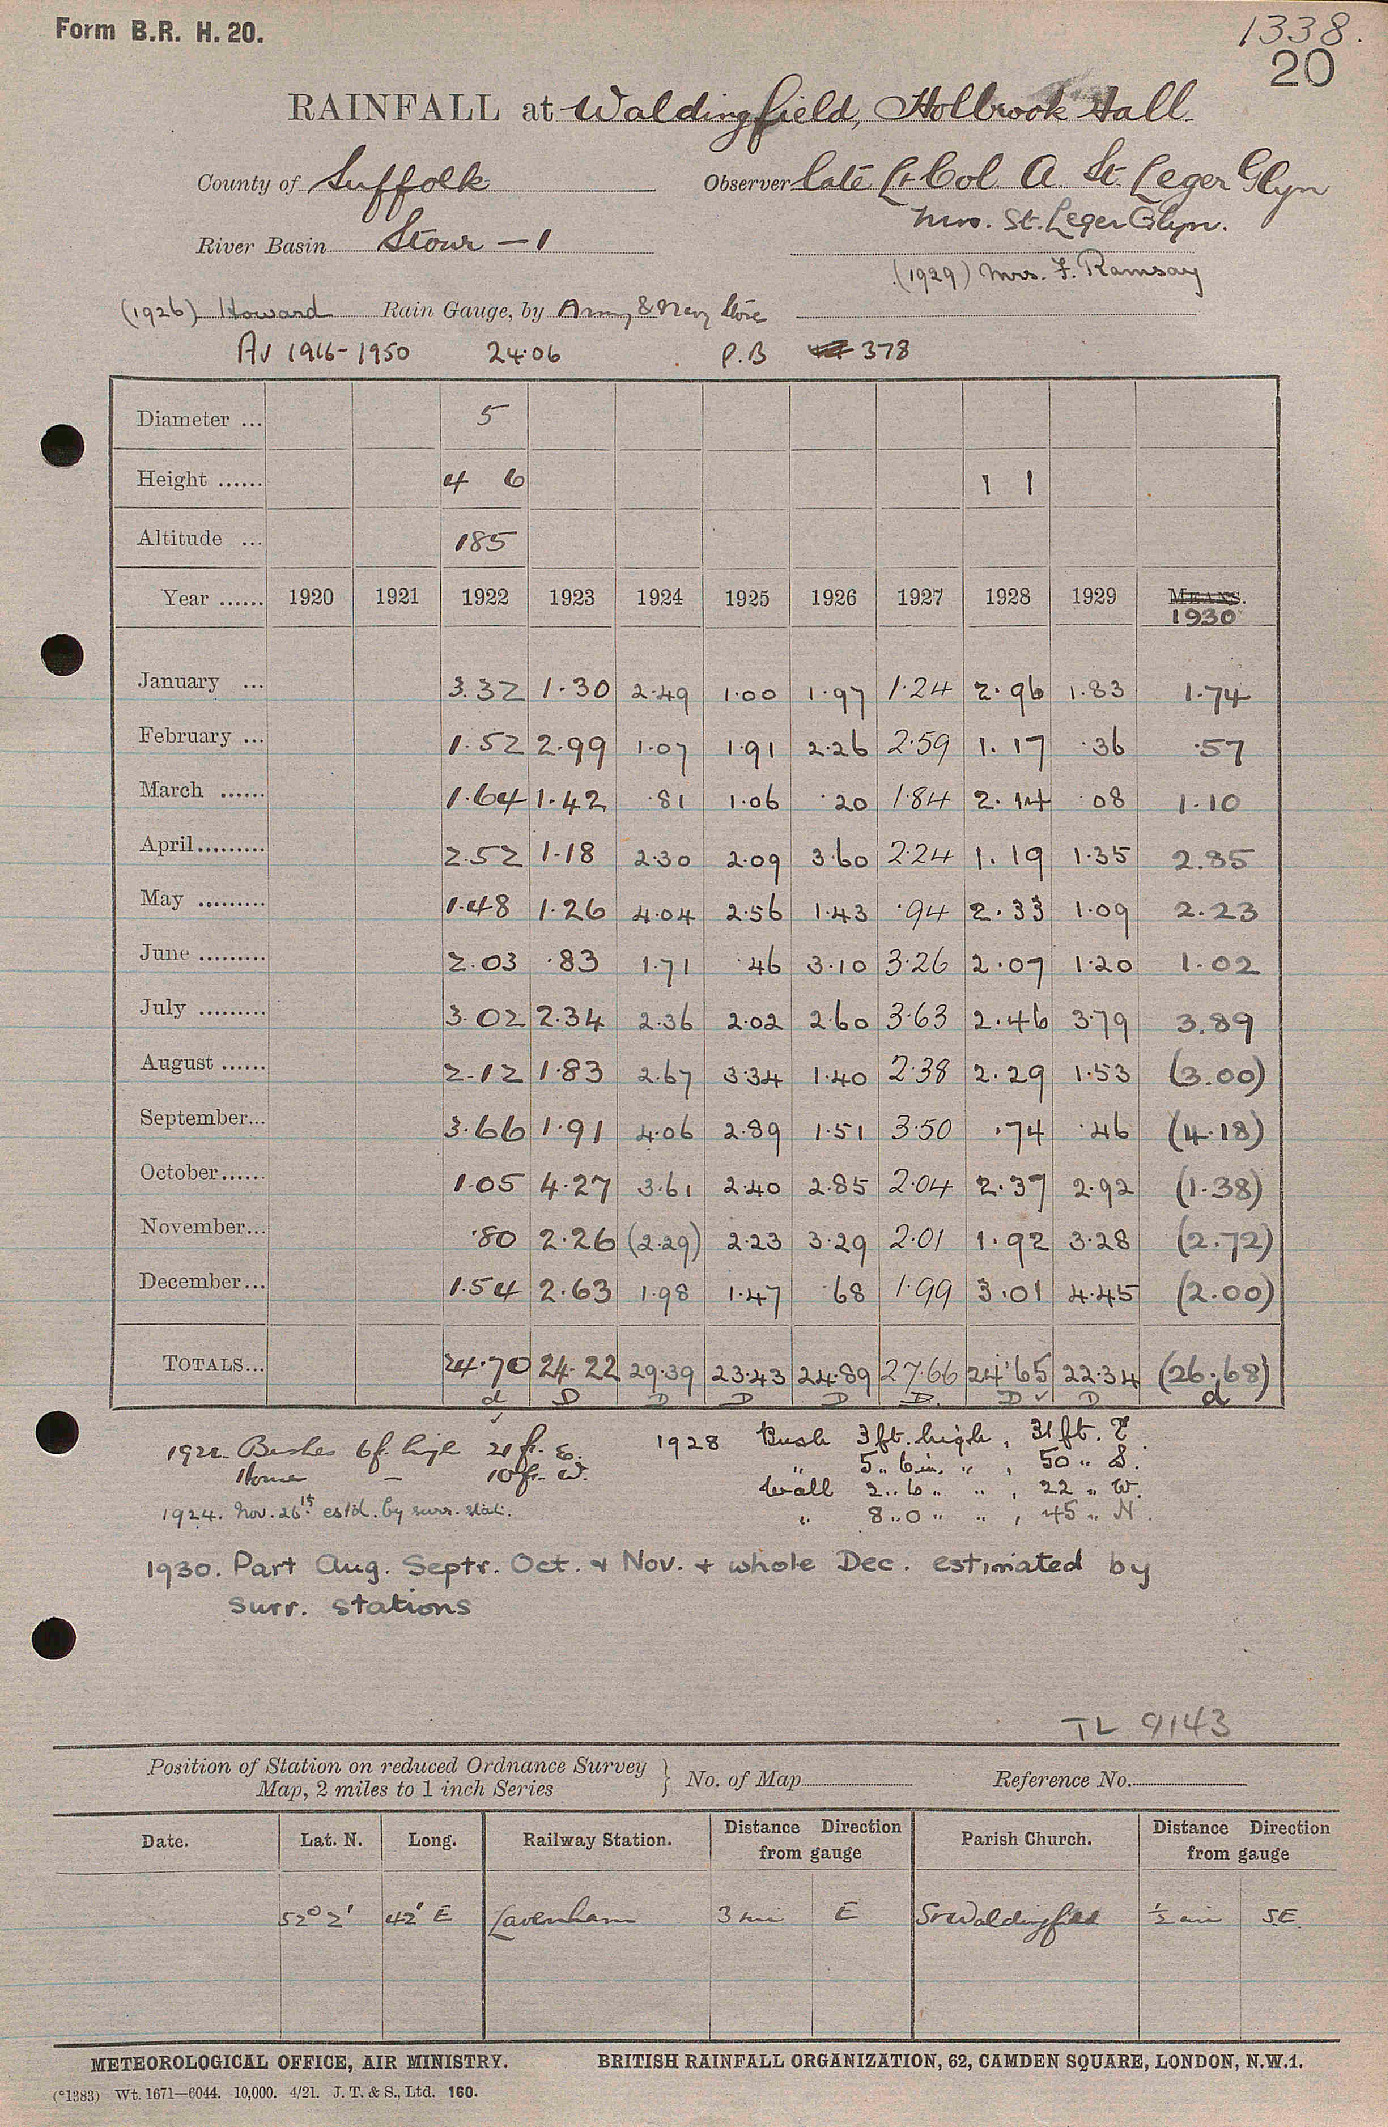 Form B.R. H. 20.
1338.
20
RAINFALL at Waldingfield, Holbrook Hall.
County of Suffolk Observer late Lt Col A. St. Leger Glyn
Mrs. St. Leger Glyn.
River Basin Stour — 1
(1929) Mrs. F. Ramsay
(1926) Howard Rain Gauge, by Army & Navy Store
Av 1916-1950 24.06 P.B 378
Diameter ... 5
Height ...... 4 6 1 1
Altitude ... 185
Year ...... 1920 1921 1922 1923 1924 1925 1926 1927 1928 1929 MEANS. 1930
January ... 3.32 1.30 2.49 1.00 1.97 1.24 2.96 1.83 1.74
February ... 1.52 2.99 1.07 1.91 2.26 2.59 1.17 .36 .57
March ...... 1.64 1.42 .81 1.06 .20 1.84 2.14 .08 1.10
April......... 2.52 1.18 2.30 2.09 3.60 2.24 1.19 1.35 2.85
May ......... 1.48 1.26 4.04 2.56 1.43 .94 2.33 1.09 2.23
June ......... 2.03 .83 1.71 .46 3.10 3.26 2.07 1.20 1.02
July ......... 3.02 2.34 2.36 2.02 2.60 3.63 2.46 3.79 3.89
August ...... 2.12 1.83 2.67 3.34 1.40 2.38 2.29 1.53 (3.00)
September... 3.66 1.91 4.06 2.89 1.51 3.50 .74 .46 (4.18)
October...... 1.05 4.27 3.61 2.40 2.85 2.04 2.37 2.92 (1.38)
November... .80 2.26 (2.29) 2.23 3.29 2.01 1.92 3.28 (2.72)
December... 1.54 2.63 1.98 1.47 .68 1.99 3.01 4.45 (2.00)
TOTALS... 24.70 24.22 29.39 23.43 24.89 27.66 24.65 22.34 (26.68)
d D D D D D. D ✓ D d
1922 Bushes 6f. high 21 ft. E. 1928 Bush 3 ft. high, 31 ft. E.
House — 10 ft. W. " 5 " 6 in. " , 50 " S.
Wall 2 " 6 " " , 22 " W.
1924. Nov. 26th est'd. by surr. stat. " 8 " 0 " " , 45 " N.
1930. Part Aug. Septr. Oct. & Nov. + whole Dec. estimated by
surr. stations
TL 9143
Position of Station on reduced Ordnance Survey
Map, 2 miles to 1 inch Series } No. of Map Reference No.
Date. Lat. N. Long. Railway Station. Distance Direction from gauge Parish Church. Distance Direction from gauge
52° 2' 42' E Lavenham 3 mi E Waldingfield ½ mi SE.
METEOROLOGICAL OFFICE, AIR MINISTRY. BRITISH RAINFALL ORGANIZATION, 62, CAMDEN SQUARE, LONDON, N.W.1.
(*1383) Wt. 1671—6044. 10,000. 4/21. J. T. & S., Ltd. 160.